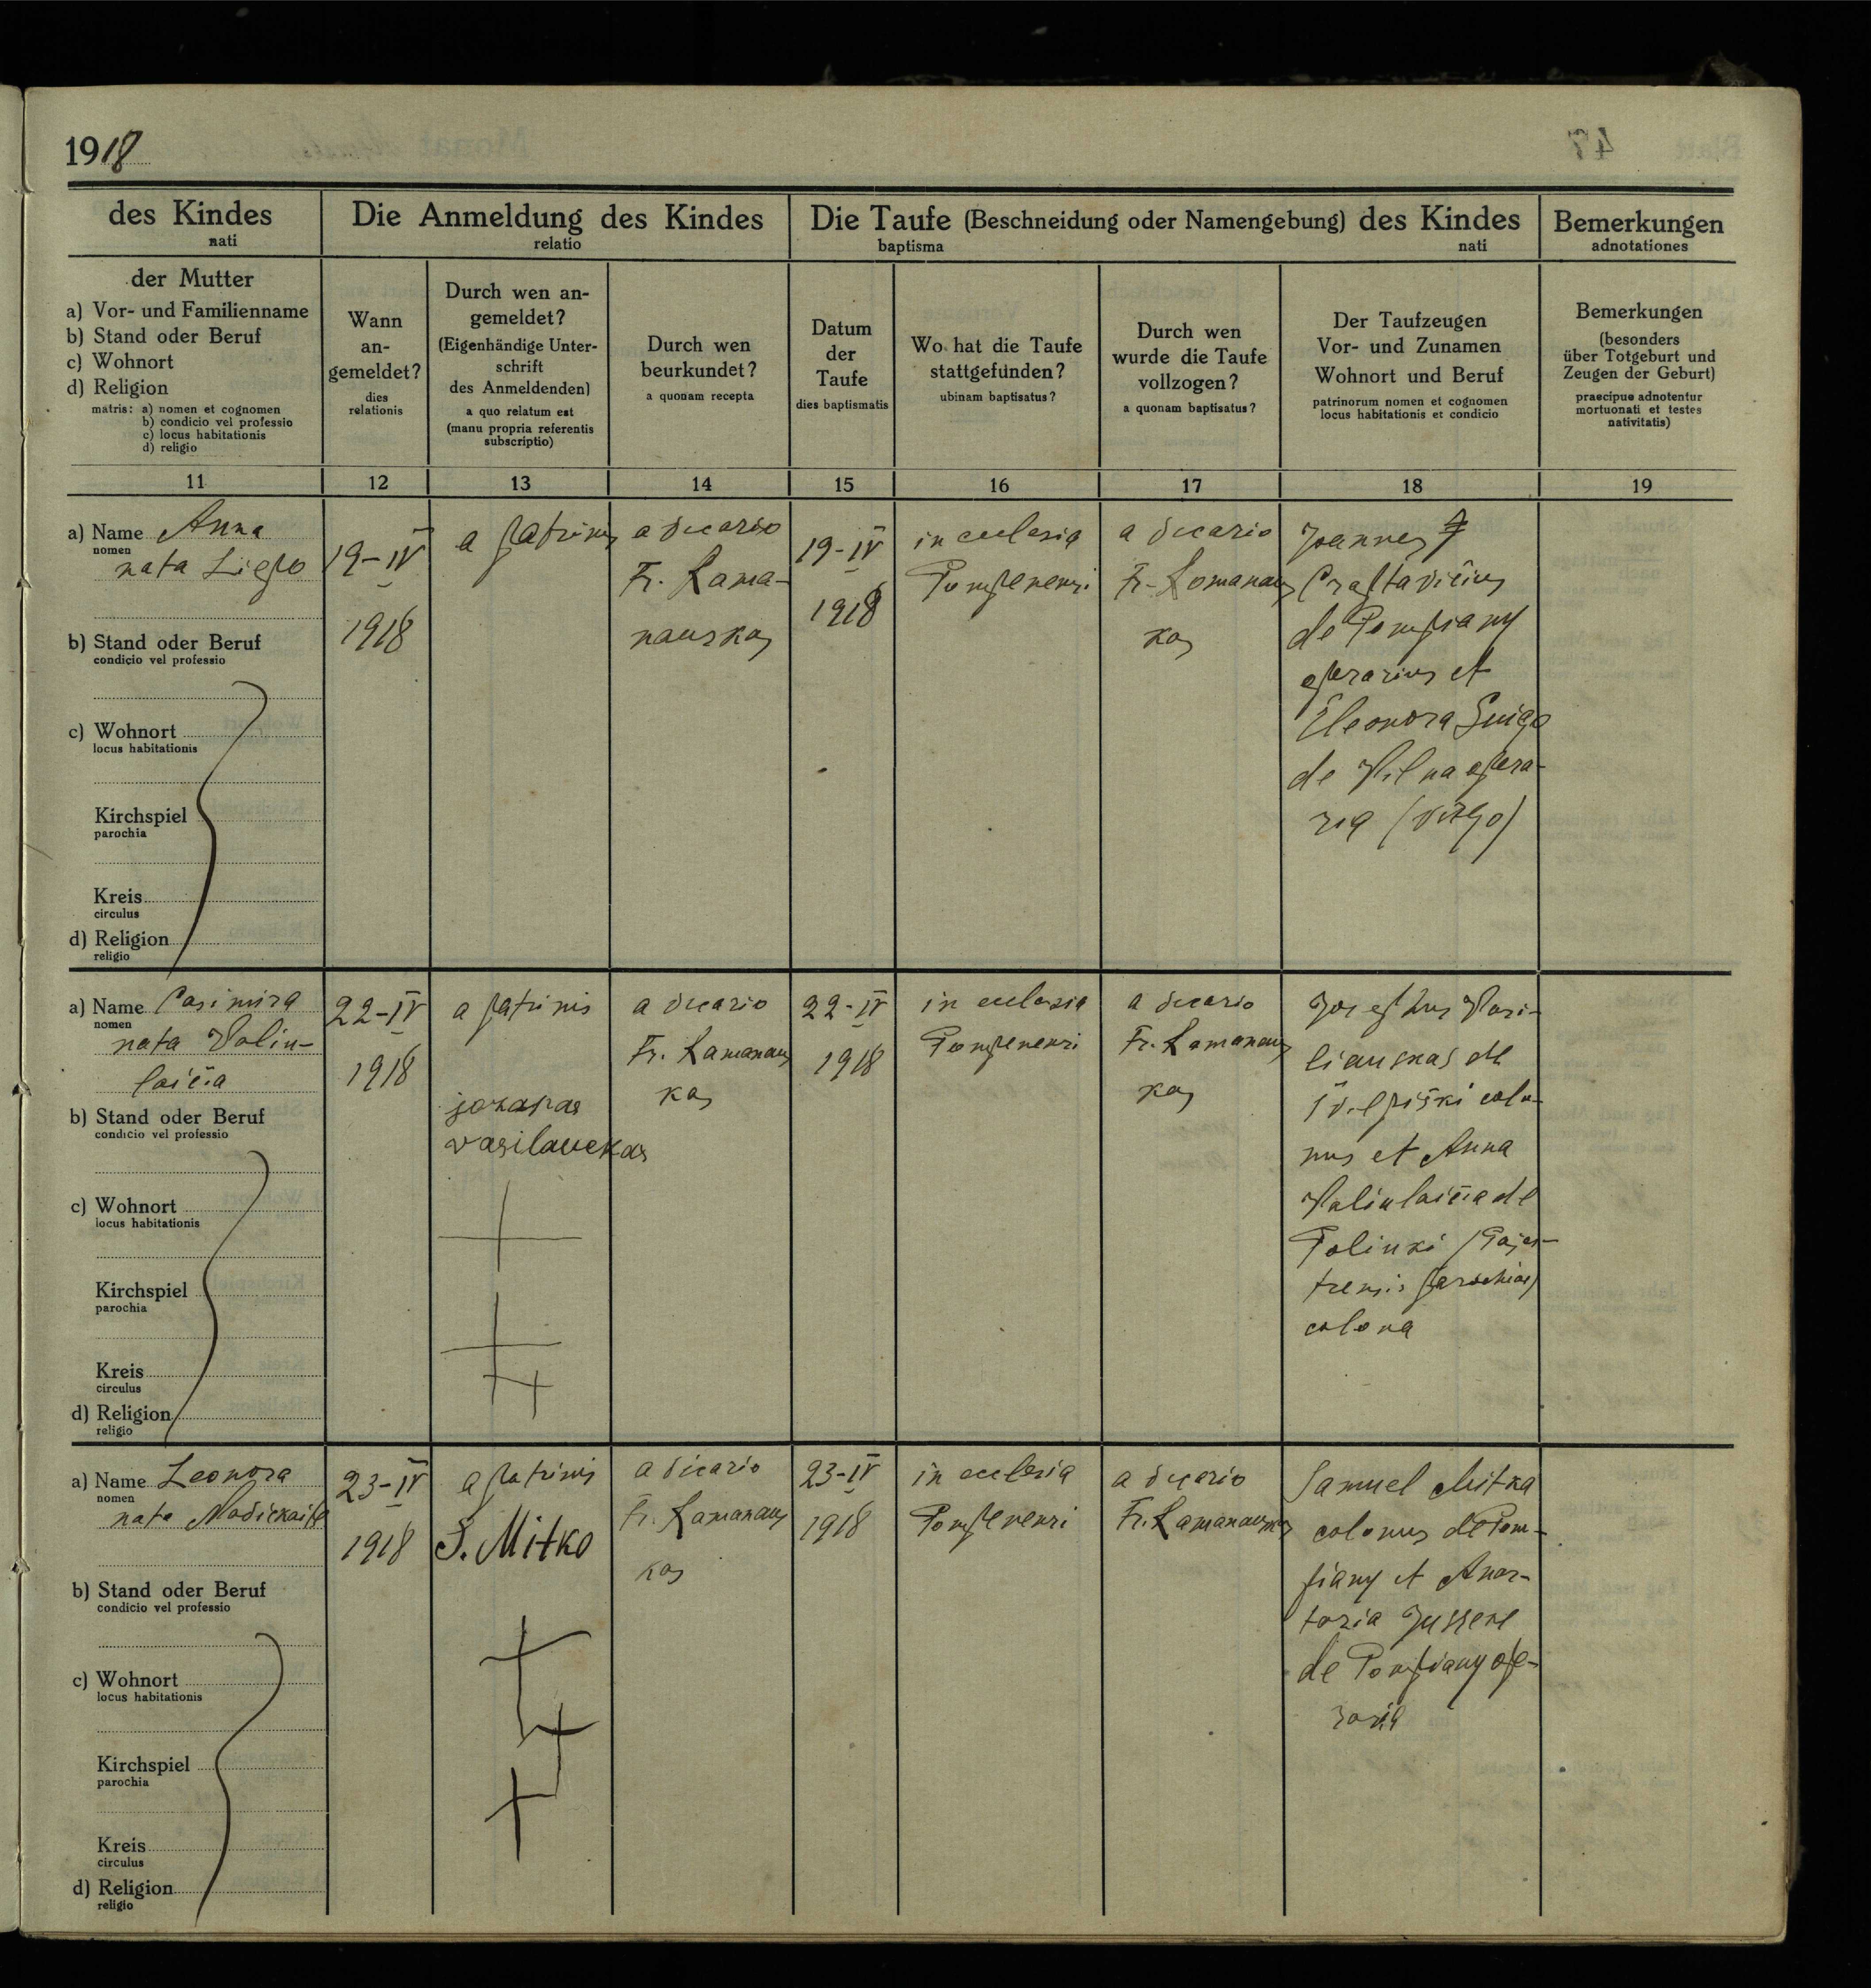 1918
des Kindes
nati
Die Anmeldung des Kindes
relatio
Die Taufe (Beschneidung oder Namengebung) des Kindes
baptisma nati
Bemerkungen
adnotationes
der Mutter
a) Vor- und Familienname
b) Stand oder Beruf
c) Wohnort
d) Religion
matris: a) nomen et cognomen
b) condicio vel professio
c) locus habitationis
d) religio
Wann
an-
gemeldet?
dies
relationis
Durch wen an-
gemeldet?
(Eigenhändige Unter-
schrift
des Anmeldenden)
a quo relatum est
(manu propria referentis
subscriptio)
Durch wen
beurkundet?
a quonam recepta
Datum
der
Taufe
dies baptismatis
Wo hat die Taufe
stattgefunden?
ubinam baptisatus?
Durch wen
wurde die Taufe
vollzogen?
a quonam baptisatus?
Der Taufzeugen
Vor- und Zunamen
Wohnort und Beruf
patrinorum nomen et cognomen
locus habitationis et condicio
Bemerkungen
(besonders
über Totgeburt und
Zeugen der Geburt)
praecipue adnotentur
mortuonati et testes
nativitatis)
11 12 13 14 15 16 17 18 19
a) Name Anna
nomen
nata Liepo
b) Stand oder Beruf
condicio vel professio
c) Wohnort
locus habitationis
Kirchspiel
parochia
Kreis
circulus
d) Religion
religio
19-IV
1918
a patrinis
a vicario
Fr. Rama-
nauskas
19-IV
1918
in ecclesia
Pompenensi
a vicario
Fr. Romanaus
kas
Joannes
de Pompiany
operarius et
Eleonora
de Vilna opera-
ria (virgo)
a) Name Casimira
nomen
nata Valiu-
laicia
b) Stand oder Beruf
condicio vel professio
c) Wohnort
locus habitationis
Kirchspiel
parochia
Kreis
circulus
d) Religion
religio
22-IV
1918
a patrinis
jozapas
vasilauckas
a vicario
Fr. Ramanaus
kas
22-IV
1918
in ecclesia
Pompenensi
a vicario
Fr. Ramanaus
kas
Josephus Vasi-
liauskas de
colo-
nus et Anna
Valiulaicia de
Polinki
parochiae)
colona
a) Name Leonora
nomen
nata
b) Stand oder Beruf
condicio vel professio
c) Wohnort
locus habitationis
Kirchspiel
parochia
Kreis
circulus
d) Religion
religio
23-IV
1918
a patrinis
S. Mitko
a vicario
Fr. Ramanaus
kas
23-IV
1918
in ecclesia
Pompenensi
a vicario
Fr. Ramanauskas
Samuel Mitka
colonus de Pom-
piany et Anas-
tasia
de Pompiany ope-
raria